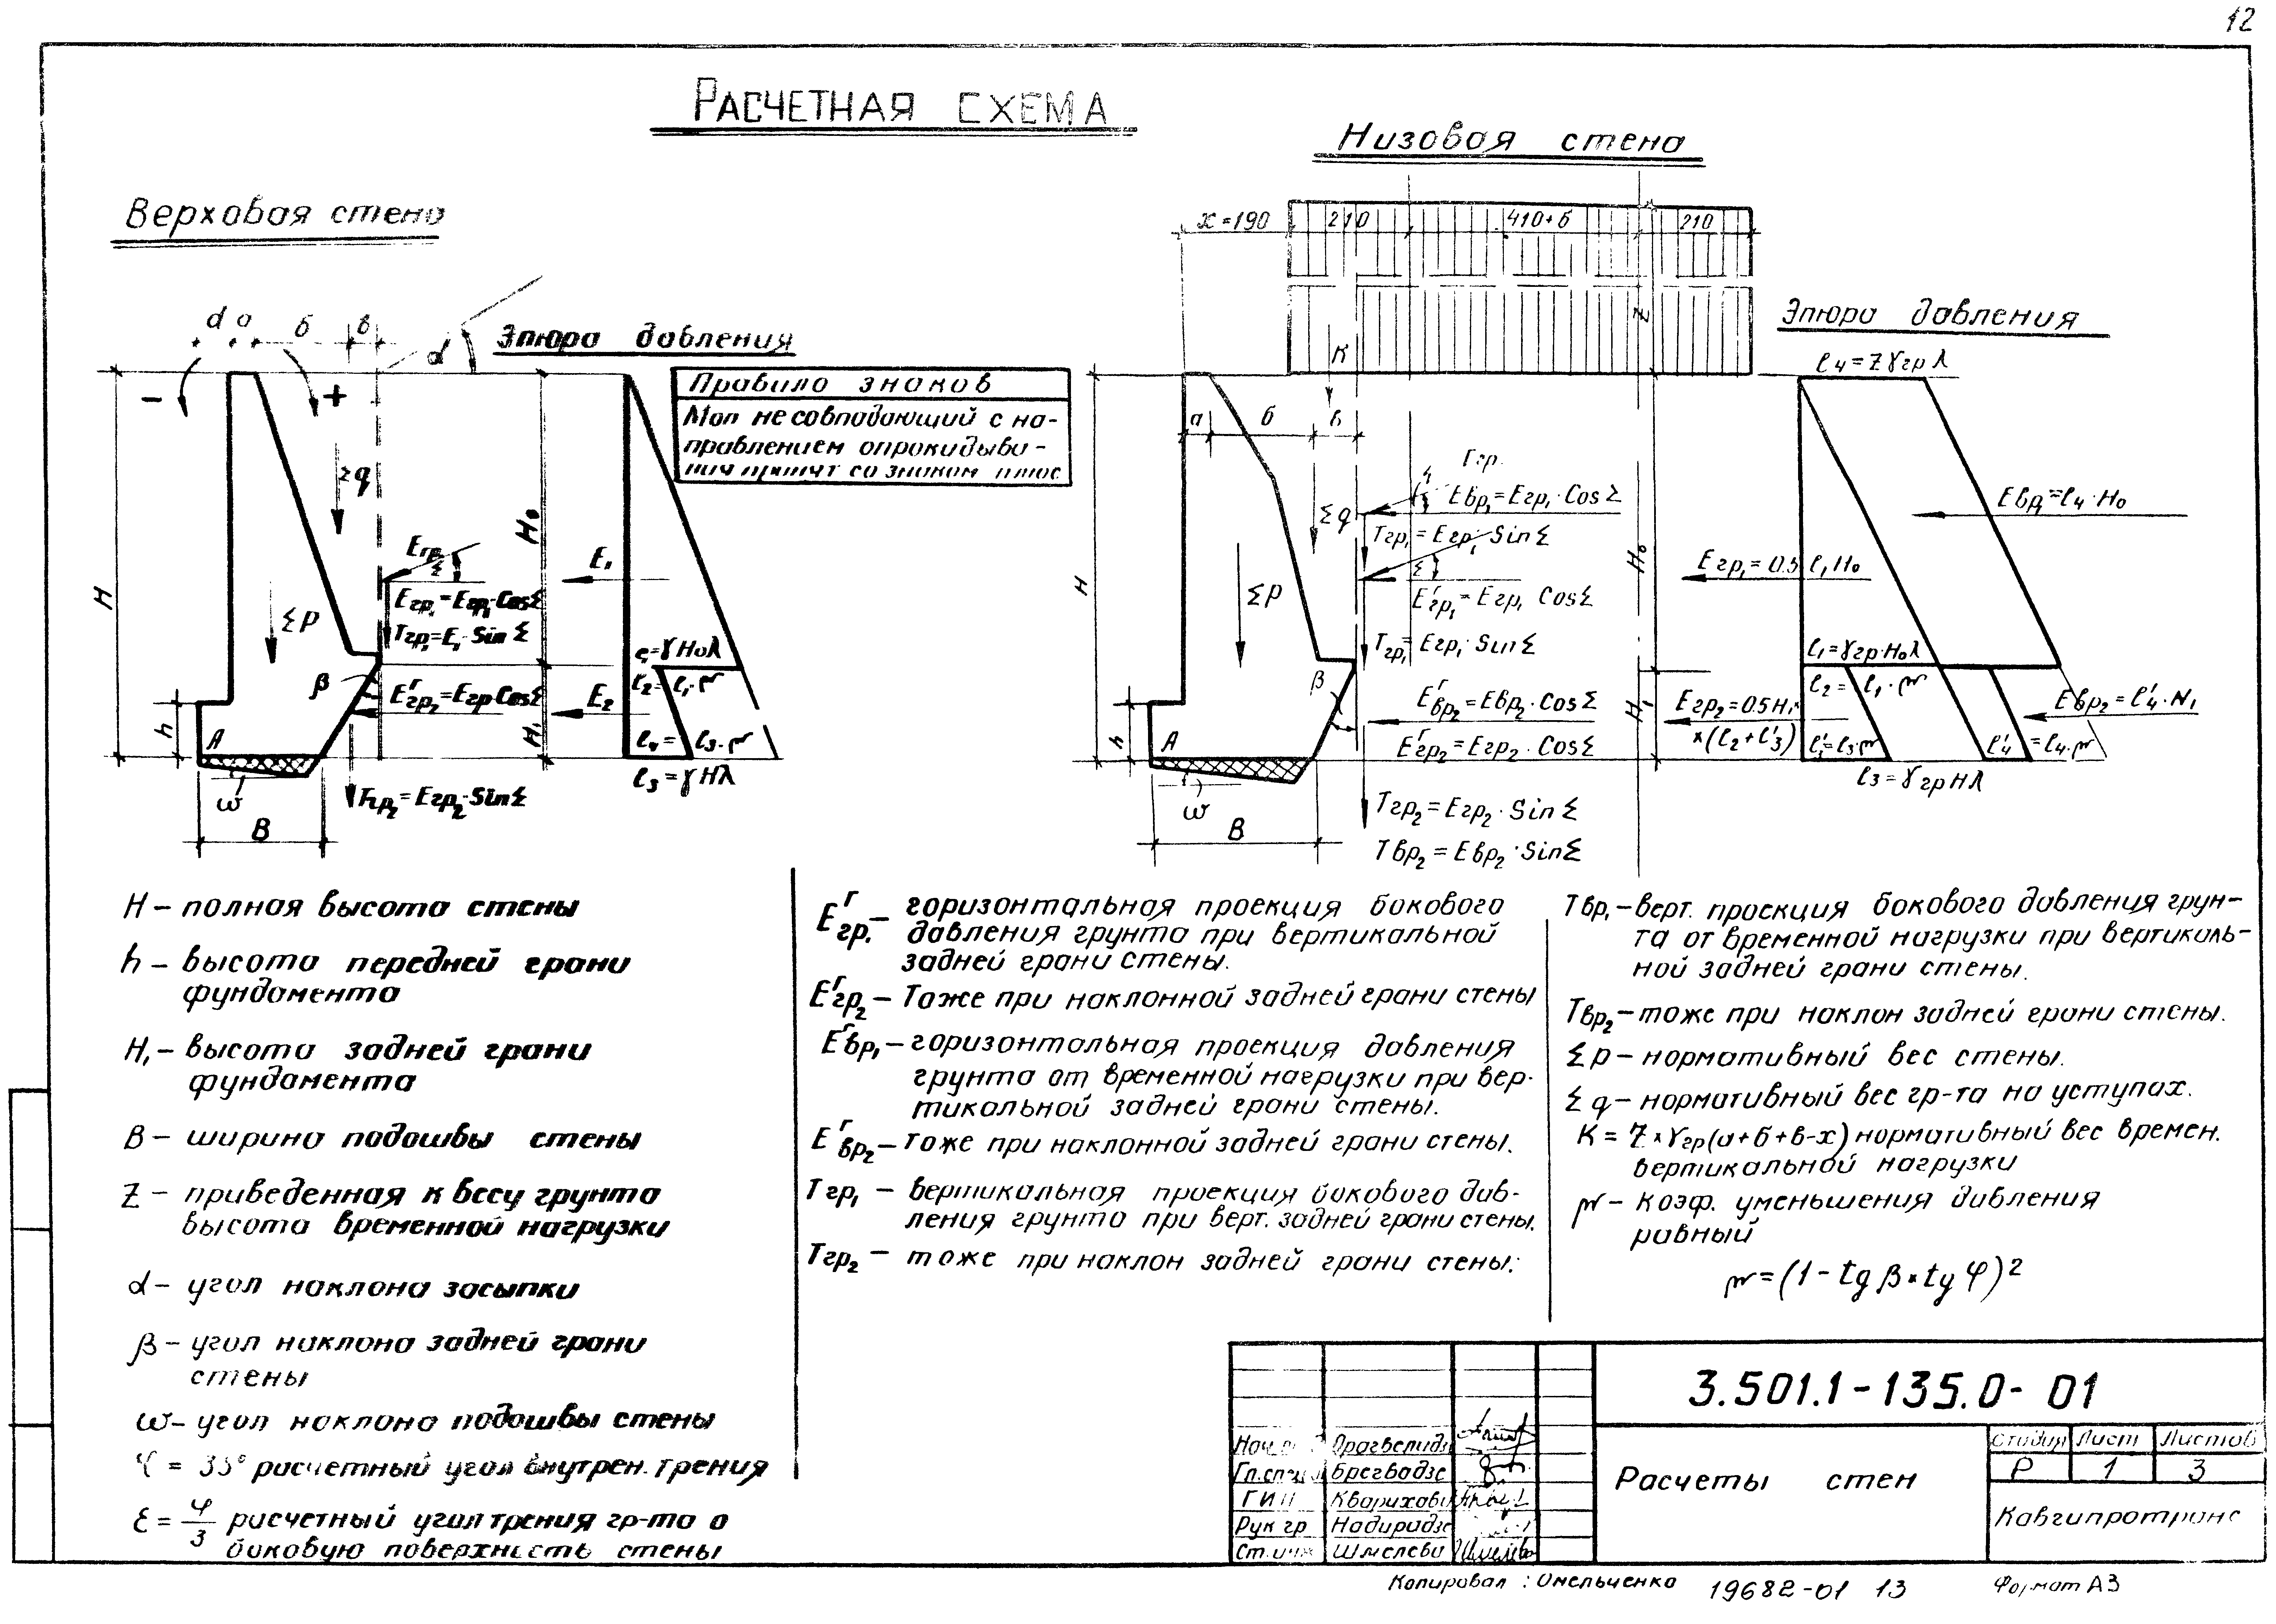 12
РАСЧЕТНАЯ СХЕМА
Верховая стена
d a б в
α
- +
Эпюра давления
Правило знаков
Моп не совпадающий с на-
правлением опрокидыва-
со знаком плюс
Σq
ΣP
H
h
A
ω
B
β
H₀
H₁
Eгр₁
Σ
Eгр₁=Eгр₁·CosΣ
Tгр₁=E₁·SinΣ
Eʳгр₂=Eгр·CosΣ
Tгр₂=Eгр₂·SinΣ
E₁
E₂
e₁=γH₀λ
l₂=l₁·m
l₄=l₃·m
l₃=γHλ
Низовая стена
x=190 210 410+б 210
Z
K
a б в
Σq
ΣP
H
h
A
ω
B
β
Tгр.
Eвр₁=Eгр₁·CosΣ
Tгр₁=Eгр₁·SinΣ
Σ
Eʳгр₁=Eгр₁ CosΣ
Tгр₁=Eгр₁·SinΣ
Eʳвр₂=Eвр₂·CosΣ
Eʳгр₂=Eгр₂·CosΣ
Tгр₂=Eгр₂·SinΣ
Tвр₂=Eвр₂·SinΣ
H₀
H₁
Эпюра давления
l₄=Zγгрλ
Eвр₁=l₄·H₀
Eгр₁=0.5 l₁H₀
l₁=γгр·H₀λ
l₂= l₁·m
Eгр₂=0.5H₁
×(l₂+l'₃)
l'₁=l₃·m
l'₄ =l₄·m
Eвр₂=l'₄·H₁
l₃=γгрHλ
H – полная высота стены
h – высота передней грани
фундамента
H₁ – высота задней грани
фундамента
B – ширина подошвы стены
Z – приведенная к весу грунта
высота временной нагрузки
α – угол наклона засыпки
β – угол наклона задней грани
стены
ω – угол наклона подошвы стены
φ = 35° расчетный угол внутрен. трения
ε = φ/3 расчетный угол трения гр-та о
боковую поверхность стены
Eʳгр₁ – горизонтальная проекция бокового
давления грунта при вертикальной
задней грани стены.
Eʳгр₂ – Тоже при наклонной задней грани стены
Eʳвр₁ – горизонтальная проекция давления
грунта от временной нагрузки при вер-
тикальной задней грани стены.
Eʳвр₂ – тоже при наклонной задней грани стены.
Tгр₁ – вертикальная проекция бокового дав-
ления грунта при верт. задней грани стены.
Tгр₂ – тоже при наклон задней грани стены.
Tвр₁ – верт. проекция бокового давления грун-
та от временной нагрузки при вертикаль-
ной задней грани стены.
Tвр₂ – тоже при наклон задней грани стены.
ΣP – нормативный вес стены.
Σq – нормативный вес гр-та на уступах.
K = Z×γгр(а+б+в-х) нормативный вес времен.
вертикальной нагрузки
m – коэф. уменьшения давления
равный
m=(1-tgβ×tgφ)²
3.501.1-135.0-01
Расчеты стен
Стадия Лист Листов
Р 1 3
Кавгипротранс
Нач. Прагвелидзе
Гл.спец Брегвадзе
ГИП
Рук гр Надирадзе
Ст.инж Шмелева
Копировал: Омельченко 19682-01 13 Формат А3